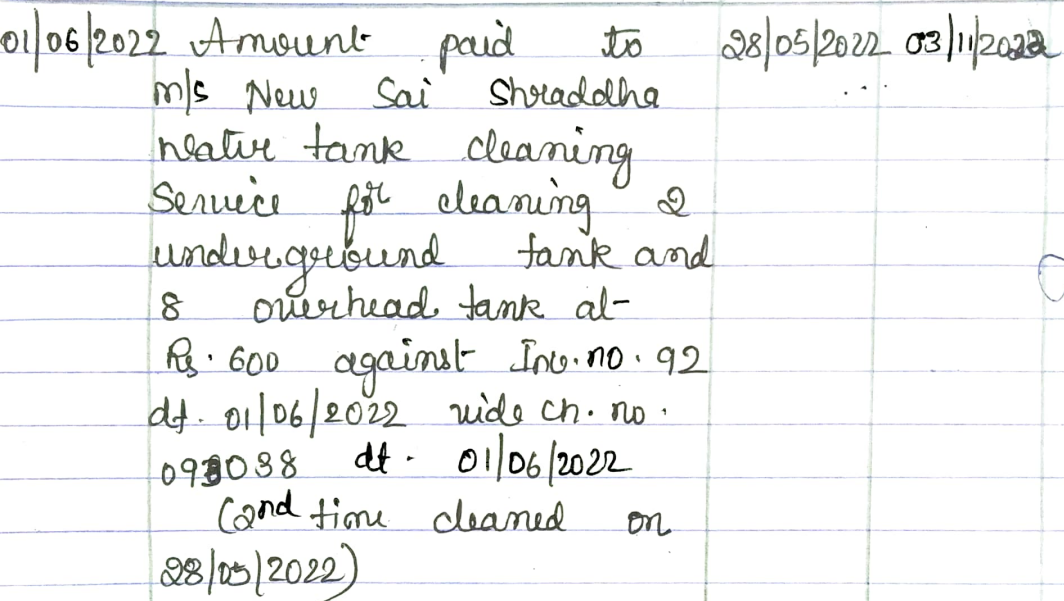 01/06/2022 Amount paid to 28/05/2022 03/11/2022
m/s New Sai Shraddha ...
Water tank cleaning
Service for cleaning 2
underground tank and
8 overhead tank at
Rs. 600 against Inv. no. 92
dt. 01/06/2022 vide ch. no.
093038 dt. 01/06/2022
(2nd time cleaned on
28/05/2022)